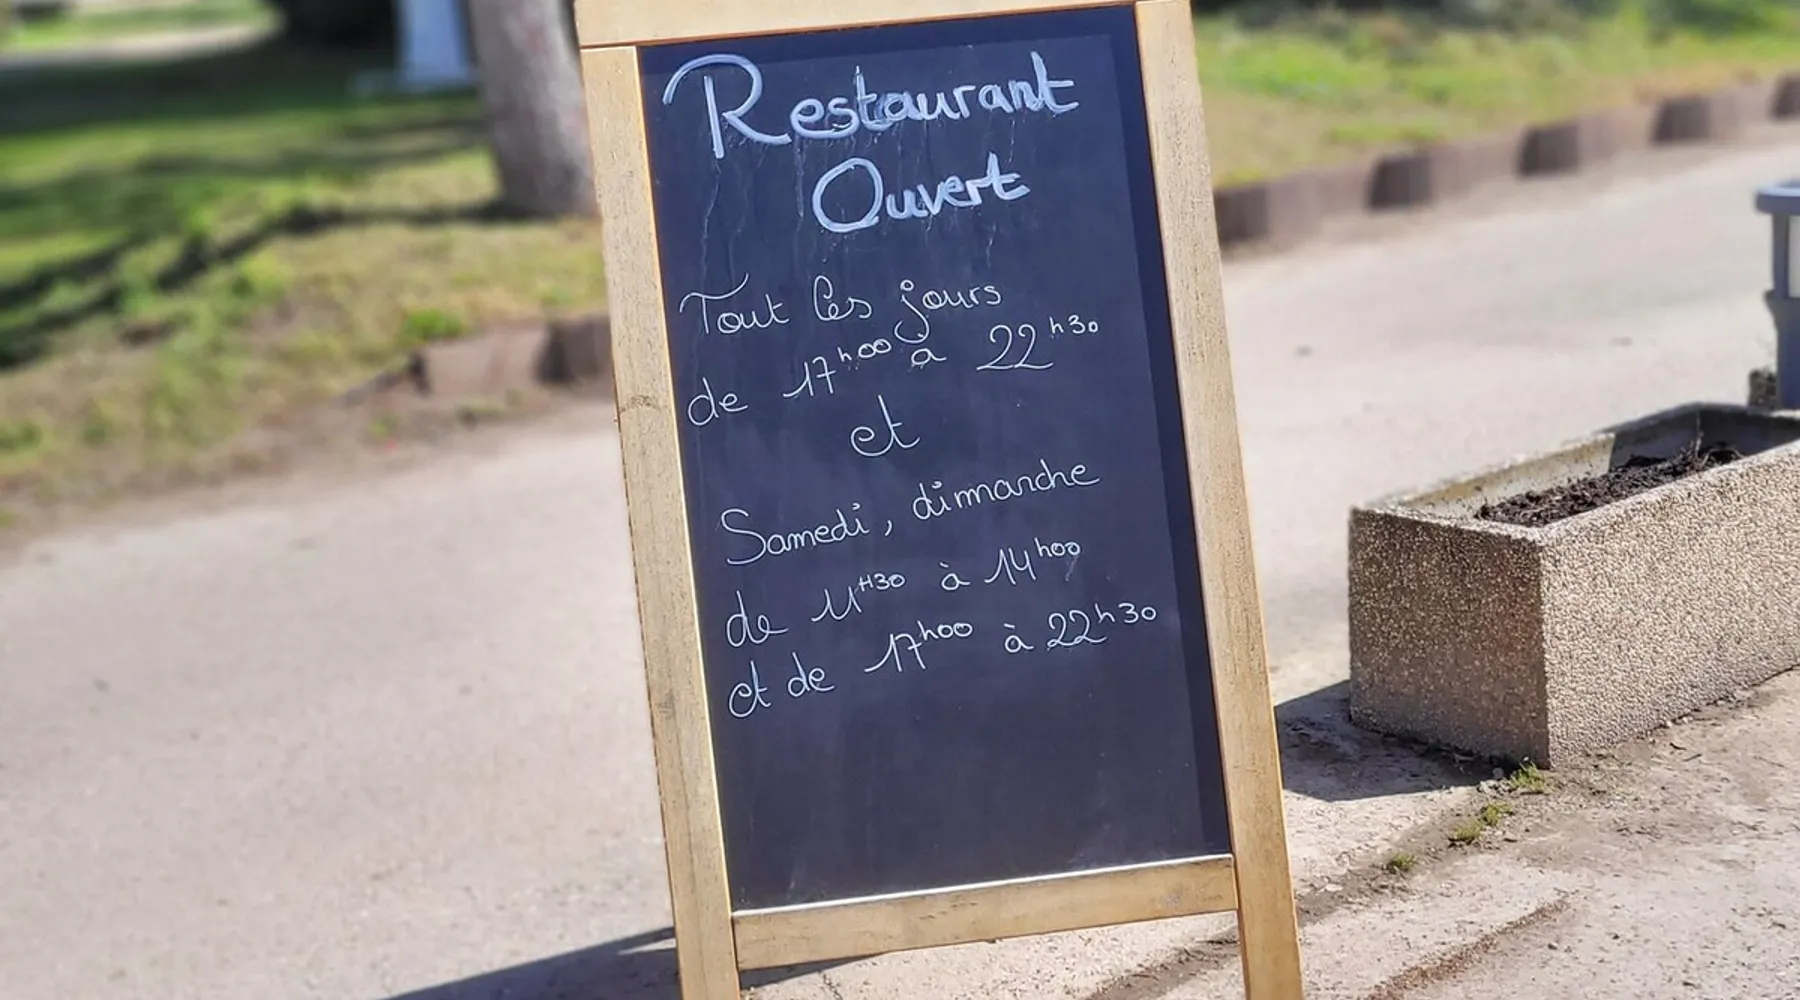 Restaurant
Ouvert
Tout les jours
de 17h00 à 22h30
et
Samedi, dimanche
de 11H30 à 14h00
et de 17h00 à 22h30